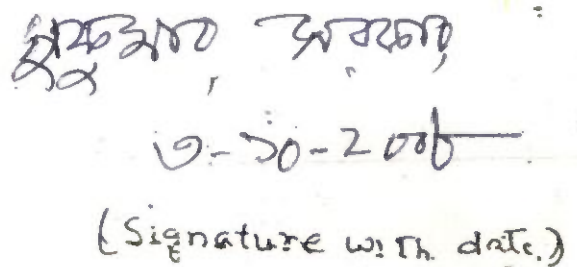 সুকুমার সরকার
৩-১০-২০০৮
(Signature with date.)